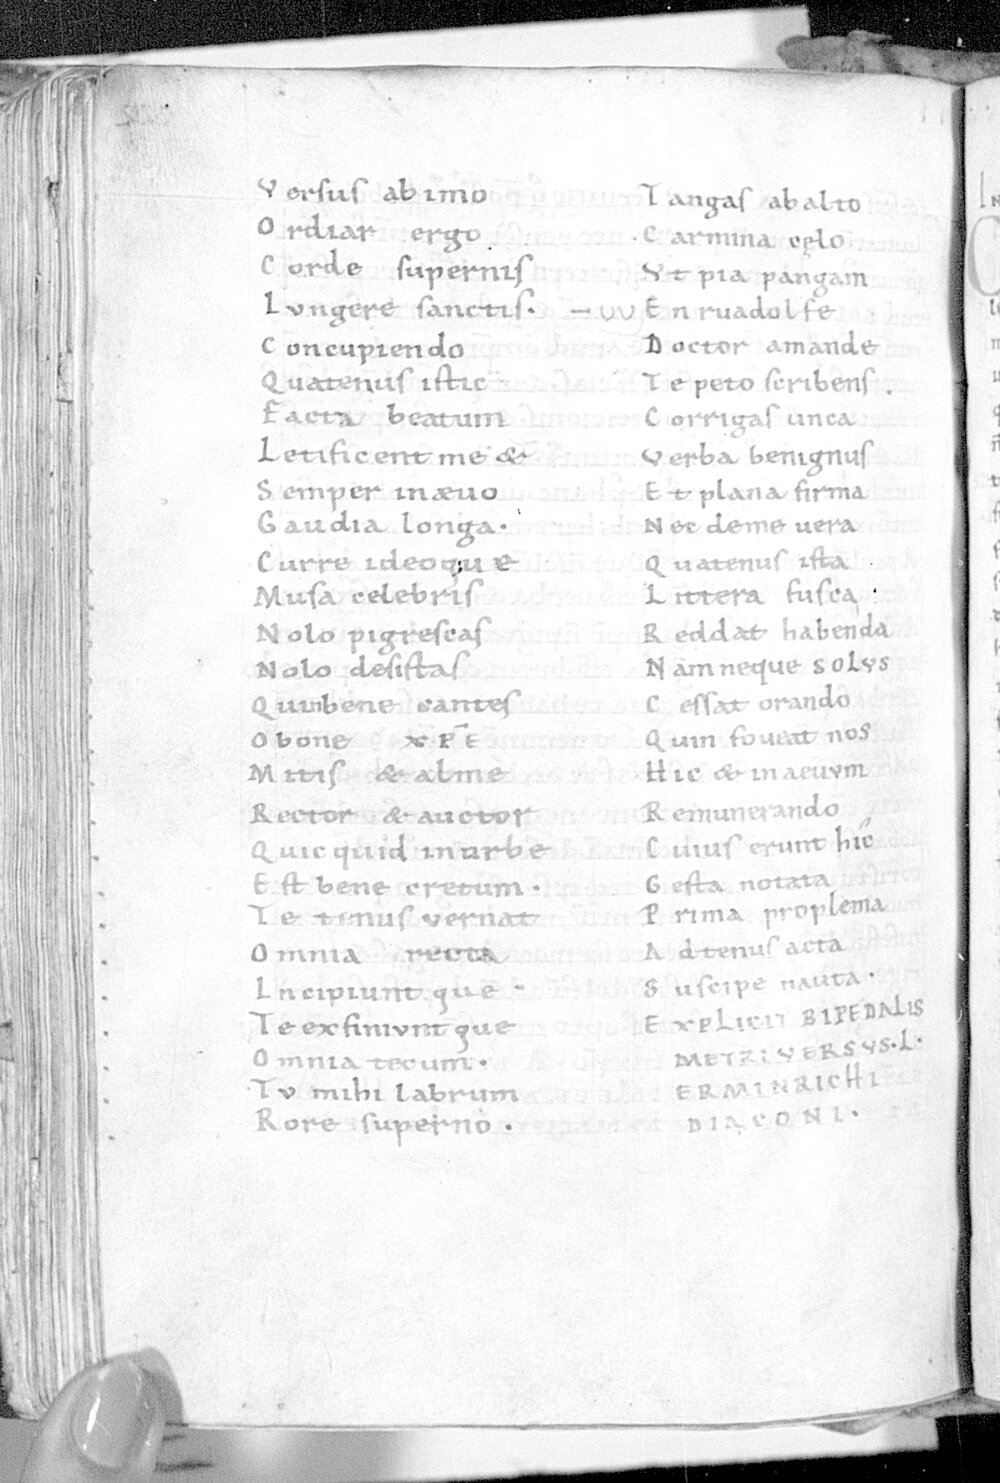 Versus ab imo
Ordiar ergo
Corde supernis
Iungere sanctis.
Concupiendo
Quatenus istic
Facta beatum
Letificent me &
Semper in ævo
Gaudia longa.
Curre ideoque
Musa celebris
Nolo pigrescas
Nolo desistas
Qui bene cantes
O bone XPE
Mitis & alme
Rector & auctor
Quicquid in urbe
Est bene cretum.
Te tenus vernat
Omnia recta
Incipiunt que
Te ex finiunt que
Omnia tecum.
Tu mihi labrum
Rore superno.
Tangas ab alto
Carmina cęlo
Vt pia pangam
En ruadolfe
Doctor amande
Te peto scribens.
Corrigas unca
Verba benignus
Et plana firma
Nec deme uera
Quatenus ista
Littera fusca
Reddat habenda
Nam neque SOLVS
Cessat orando
Quin foueat nos
Hic & in aeuum
Remunerando
Cuius erunt hic
Gesta notata
Prima proplema
Ad tenus acta
Suscipe nauta.
EXPLICIT BIPEDALIS
METRI VERSVS.L.
ERMINRICHI
DIACONI.